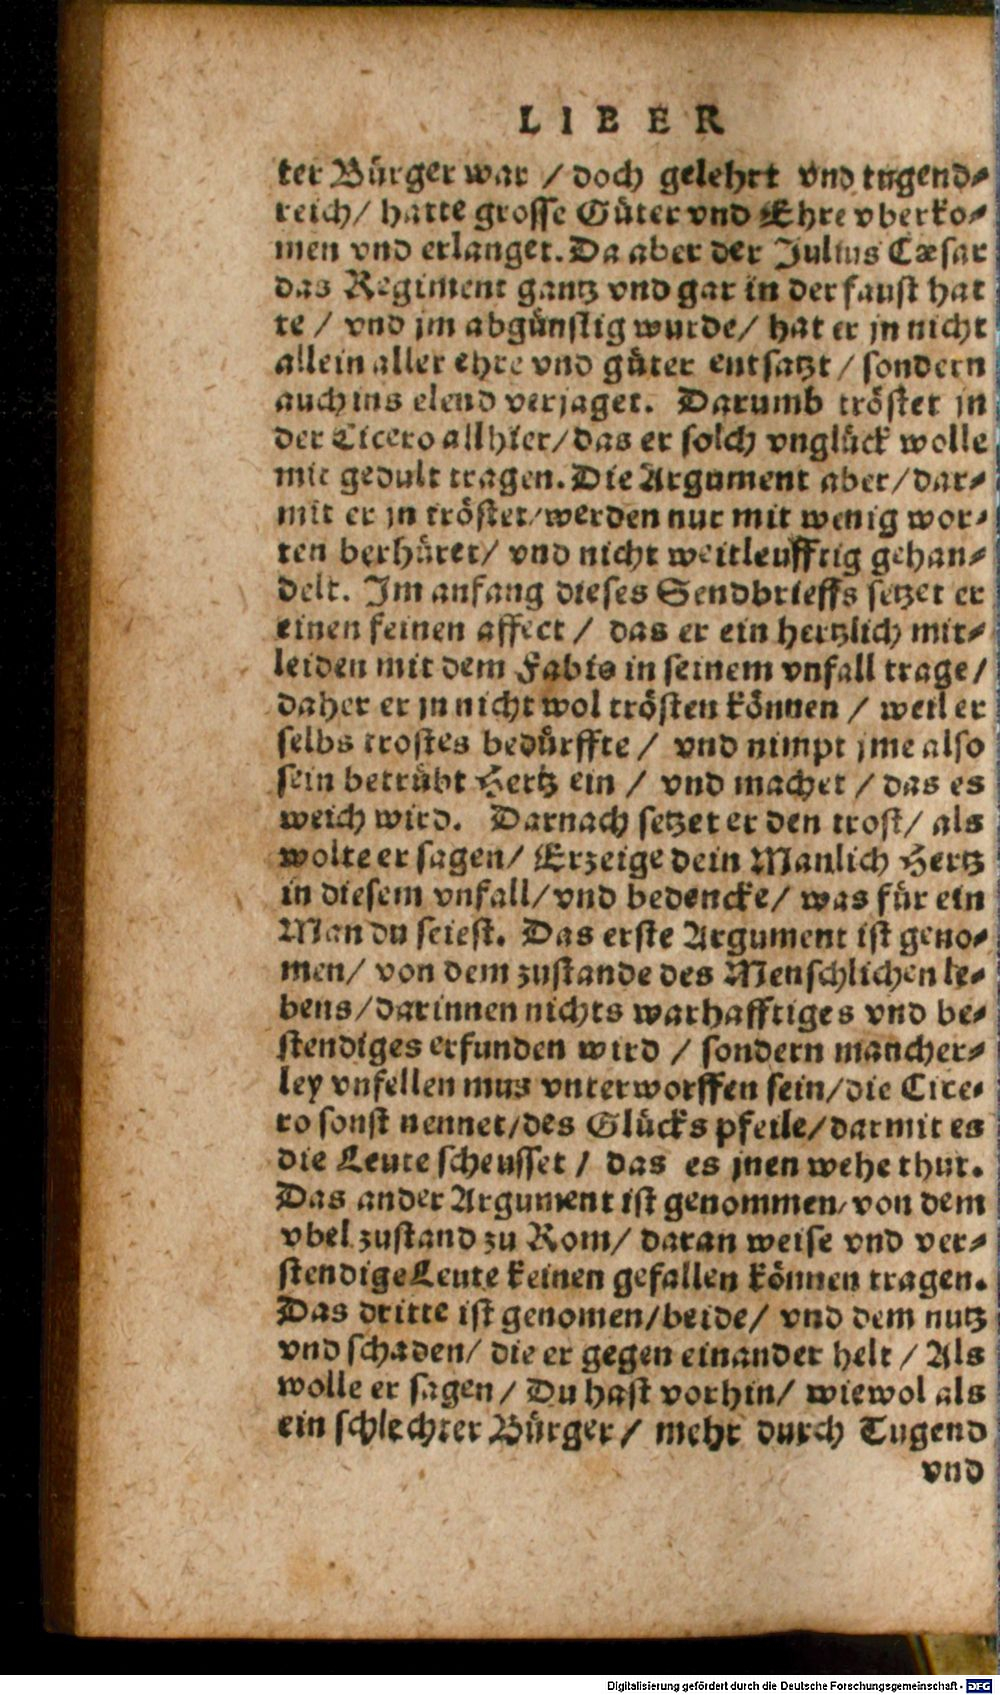 LIBER
ter Bürger war / doch gelehrt vnd tugend⸗
reich / hatte grosse Güter vnd Ehre vberko⸗
men vnd erlanget. Da aber der Julius Cæsar
das Regiment gantz vnd gar in der faust hat
te / vnd jm abgünstig wurde / hat er jn nicht
allein aller ehre vnd güter entsatzt / sondern
auch ins elend verjaget. Darumb tröstet jn
der Cicero allhier / das er solch vnglück wolle
mit gedult tragen. Die Argument aber / dar⸗
mit er jn tröstet / werden nur mit wenig wor⸗
ten berhüret / vnd nicht weitleufftig gehan⸗
delt. Im anfang dieses Sendbrieffs setzet er
einen feinen affect / das er ein hertzlich mit⸗
leiden mit dem Fabio in seinem vnfall trage /
daher er jn nicht wol trösten können / weil er
selbs trostes bedürffte / vnd nimpt jme also
sein betrübt Hertz ein / vnd machet / das es
weich wird. Darnach setzet er den trost / als
wolte er sagen / Erzeige dein Manlich Hertz
in diesem vnfall / vnd bedencke / was für ein
Man du seiest. Das erste Argument ist geno⸗
men / von dem zustande des Menschlichen le⸗
bens / darinnen nichts warhafftiges vnd be⸗
stendiges erfunden wird / sondern mancher⸗
ley vnfellen mus vnterworffen sein / die Cice⸗
ro sonst nennet / des Glücks pfeile / darmit es
die Leute scheusset / das es jnen wehe thut.
Das ander Argument ist genommen / von dem
vbel zustand zu Rom / daran weise vnd ver⸗
stendige Leute keinen gefallen können tragen.
Das dritte ist genomen / beide / vnd dem nutz
vnd schaden / die er gegen einander helt / Als
wolle er sagen / Du hast vorhin / wiewol als
ein schlechter Bürger / mehr durch Tugend
vnd
Digitalisierung gefördert durch die Deutsche Forschungsgemeinschaft - DFG